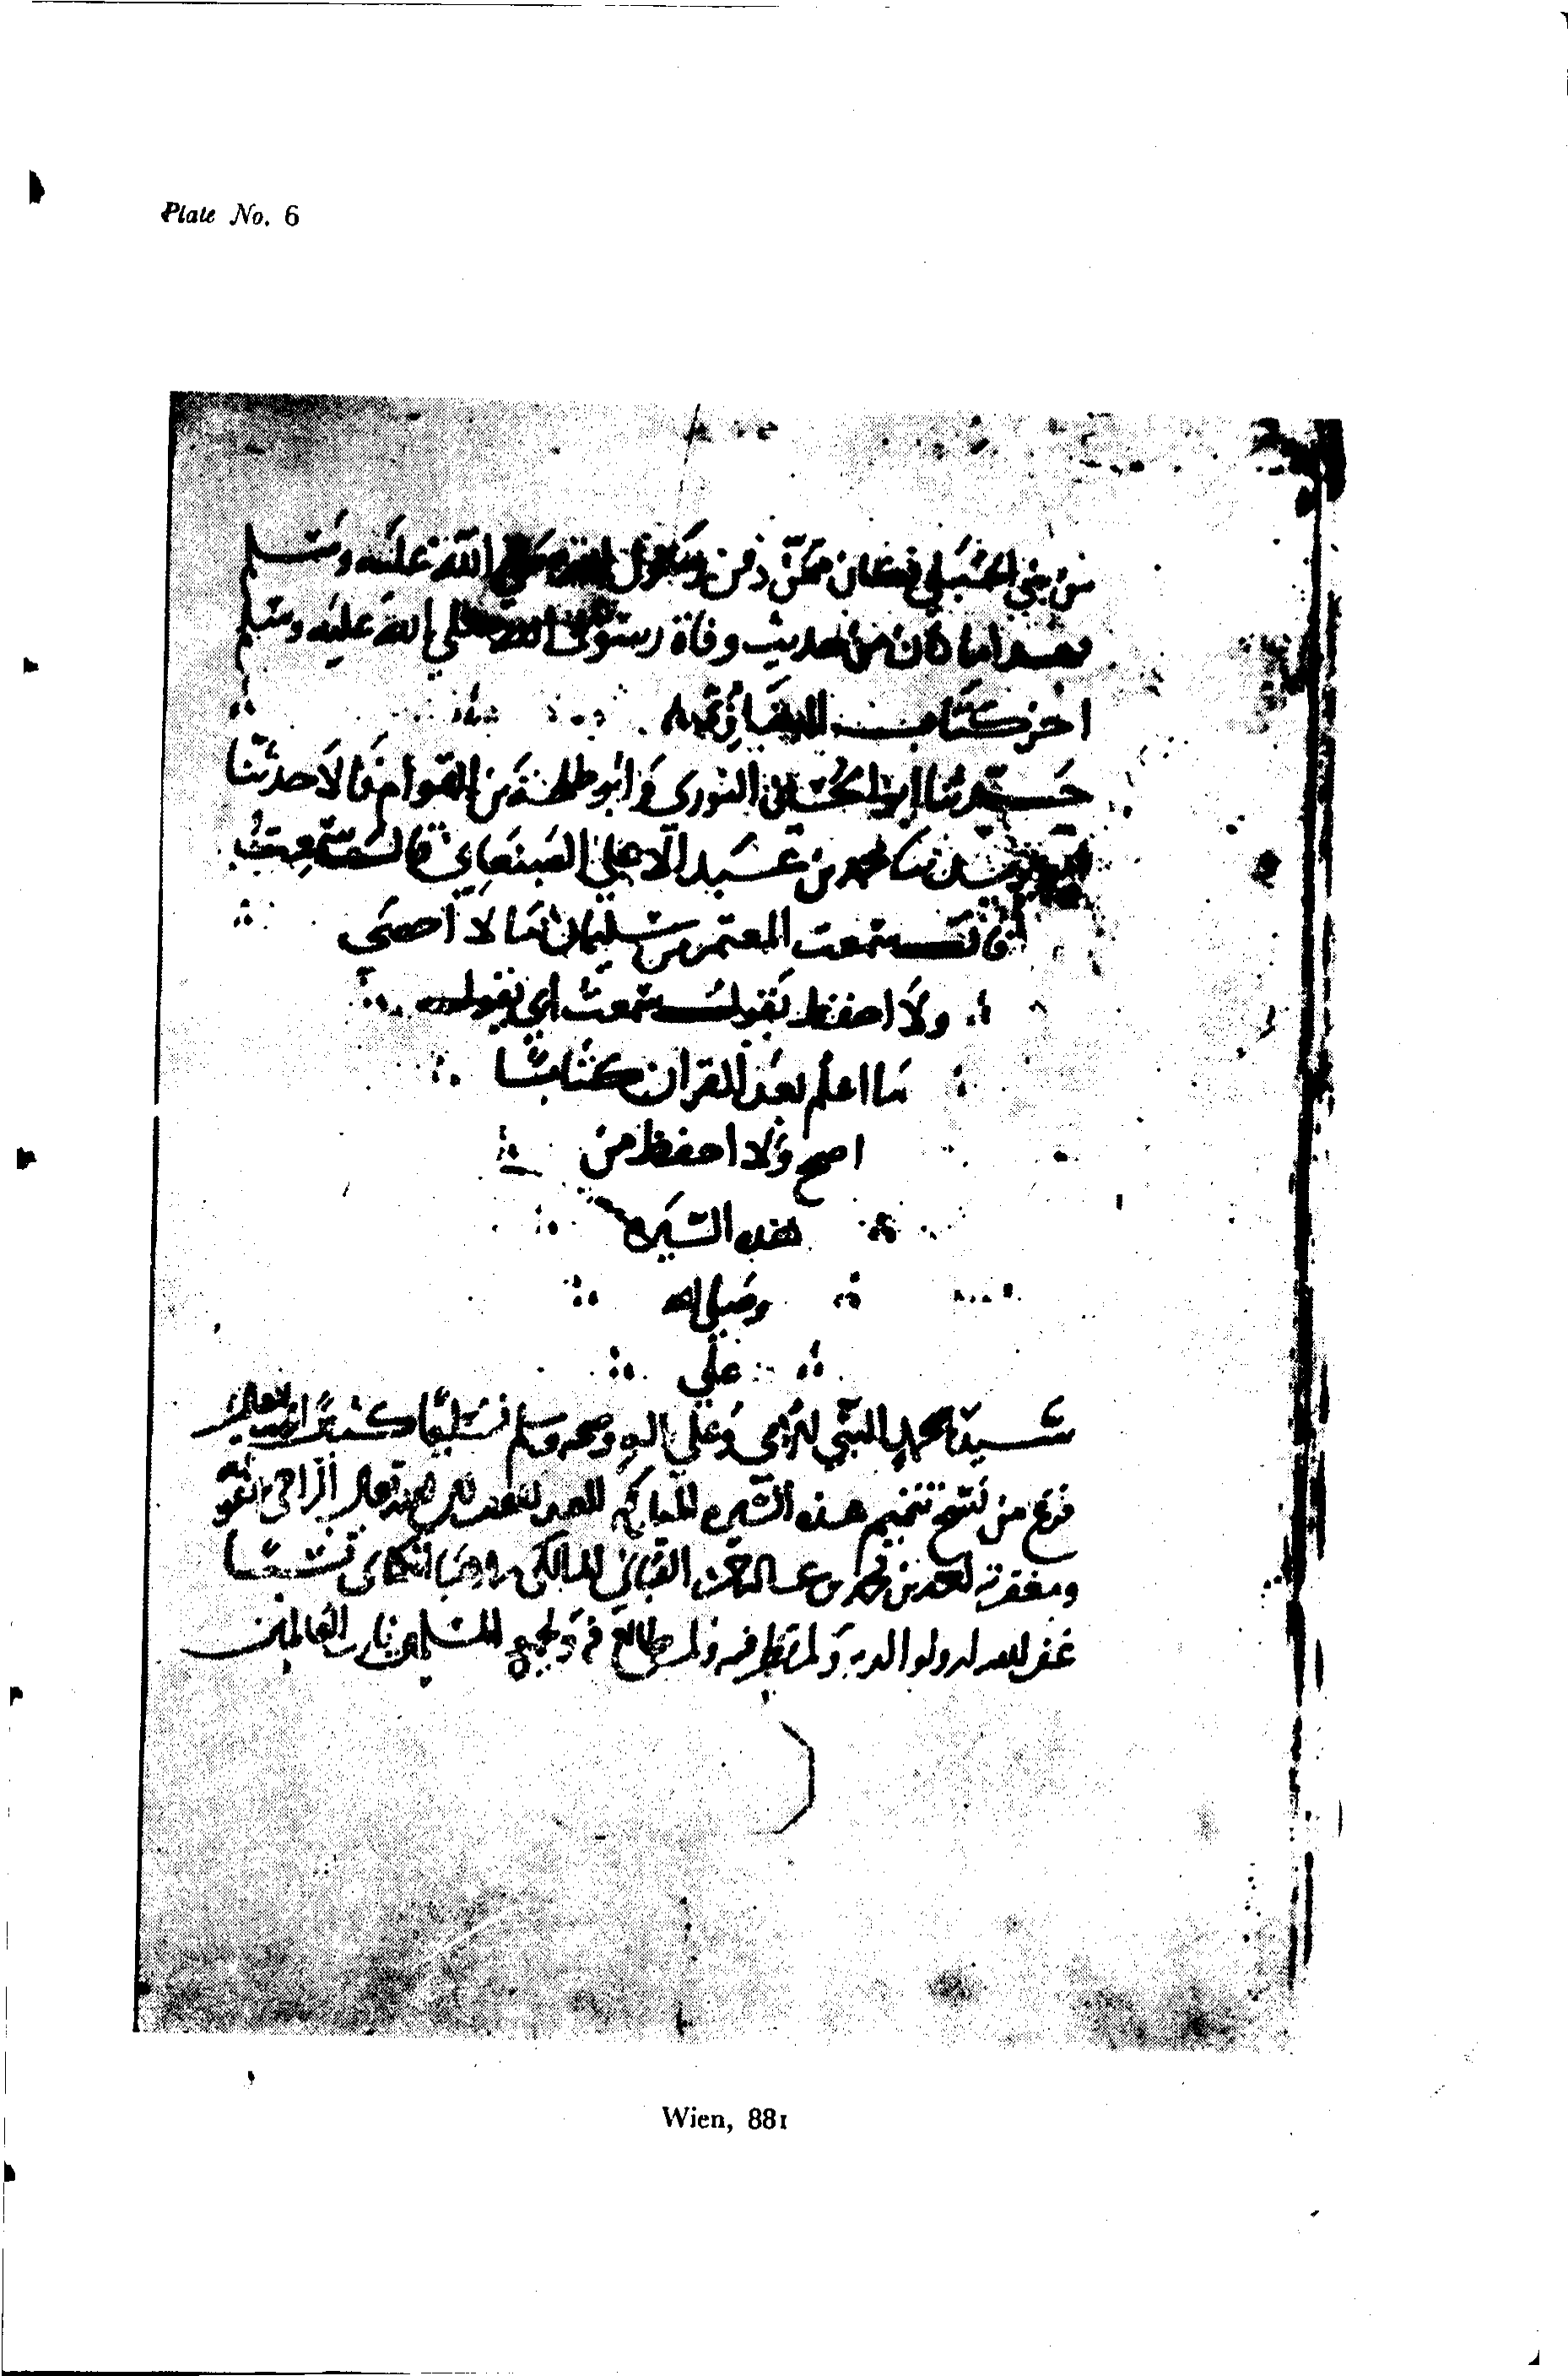 Plate No. 6
من بني الحبلي فكان ممن دفن رسول الله صلى الله عليه وسلم
فهذا ما كان من حديث وفاة رسول الله صلي الله عليه وسلم
اخر كتاب المغازي
حدثنا ابو الحسين النوري وابو طلحة بن القوام قالا حدثنا
محمد بن عبد الاعلي الصنعاني قال سمعت
قال سمعت المعتمر بن سليمان ما لا احصى
ولا احفظ يقول سمعت ابي يقول
ما اعلم بعد القران كتابا
اصح ولا احفظ من
هذه السيرة
وصلى الله
علي
سيدنا محمد النبي الامي وعلي اله وصحبه وسلم تسليما كثيرا
فرغ من نسخ هذه السيره المباركه العبد تعالى الراجي عفو
ومغفرته احمد بن محمد بن عبد الرحمن المالكي
غفر الله له ولوالديه ولمن نظر فيه ولمن طالع فيه ولجميع المسلمين يا رب العالمين
Wien, 881